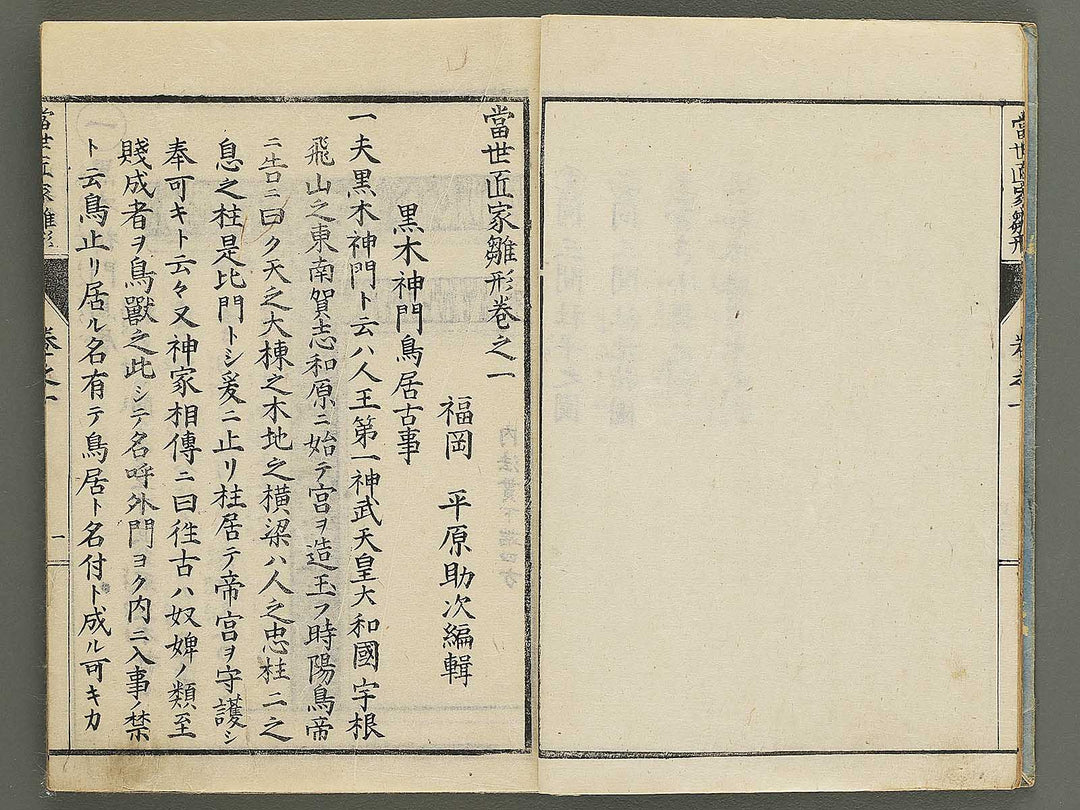 當世匠家雛形
卷之一
當世匠家雛形卷之一
福岡　平原助次編輯
黒木神門鳥居古事
一夫黒木神門ト云ハ人王第一神武天皇大和國宇根
飛山之東南賀志和原ニ始テ宮ヲ造玉フ時陽鳥帝
ニ告ニ曰ク天之大棟之木地之橫梁ハ人之忠柱二之
息之柱是比門トシ爰ニ止リ柱居テ帝宮ヲ守護シ
奉可キト云々又神家相傳ニ曰徃古ハ奴婢ノ類至
賤成者ヲ鳥獸之此シテ名呼外門ヨク内ニ入事ノ禁
ト云鳥止リ居ル名有テ鳥居ト名付ト成ル可キカ
當世匠家雛形
卷之一
一